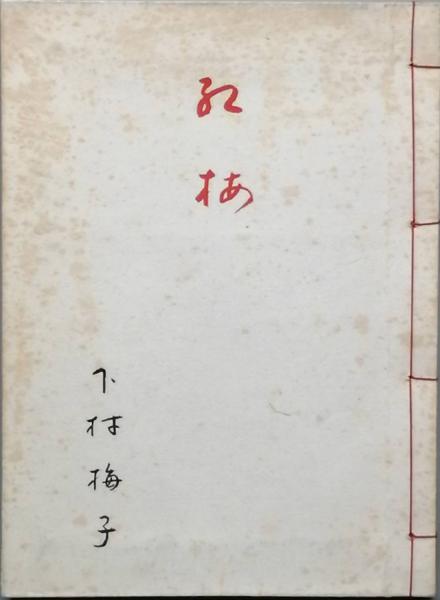 紅梅
下村梅子